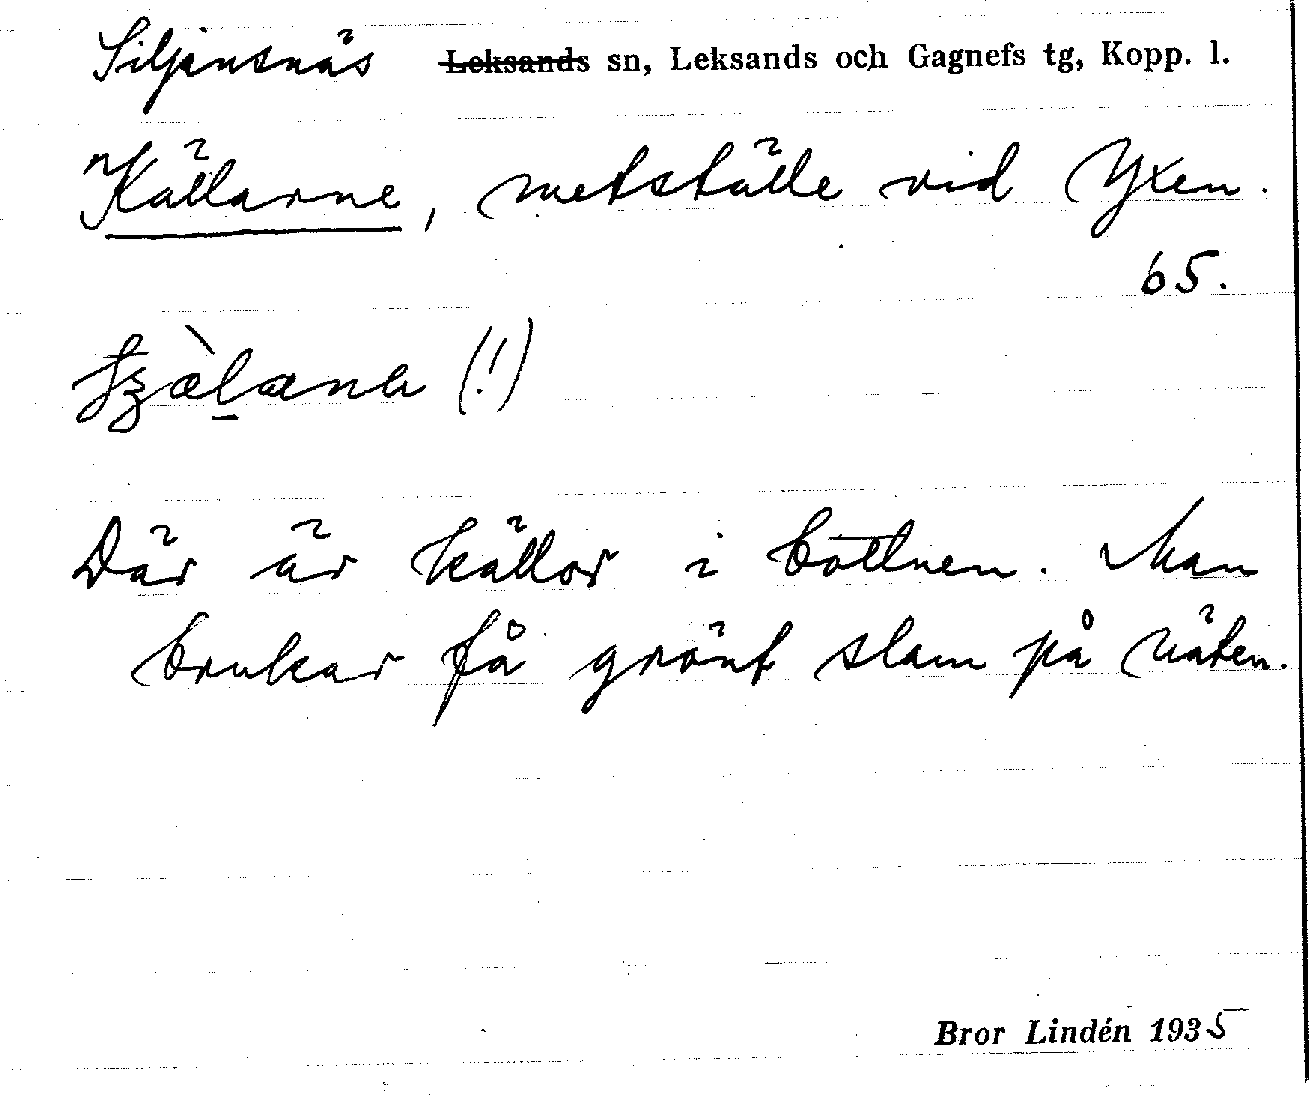 Siljansnäs Leksands sn, Leksands och Gagnefs tg, Kopp. l.
Källarne, metställe vid Yxen.
65.
(!)
Där är källor i bottnen. Man
brukar få grönt slam på näten.
Bror Lindén 1935